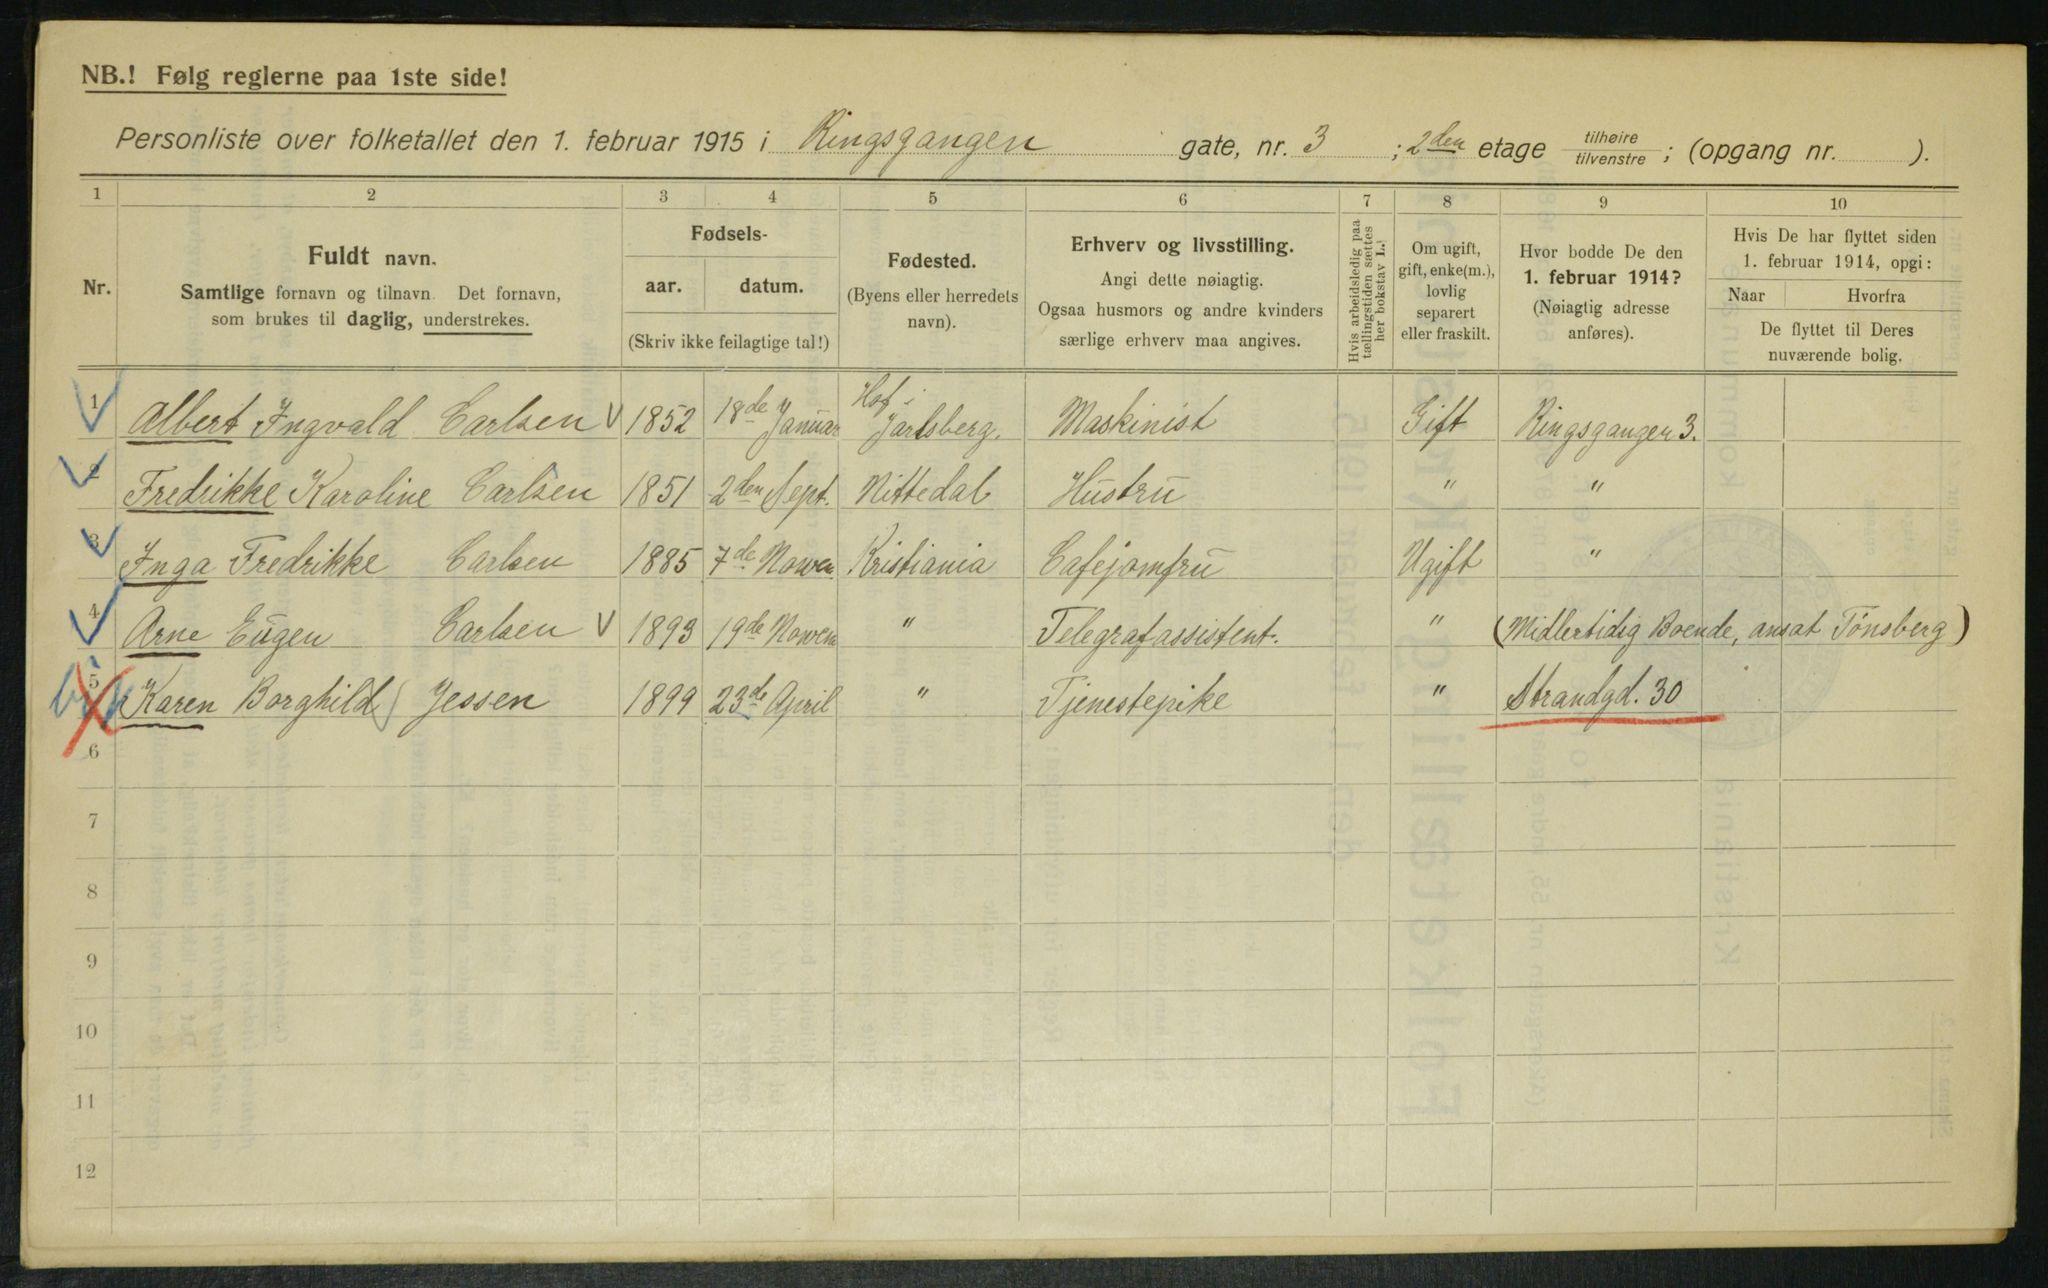 NB.! Følg reglerne paa 1ste side!
Personliste over folketallet den 1. februar 1915 i Ringsgangen gate, nr. 3 ; 2den etage tilhøire tilvenstre ; (opgang nr. ).
1 2 3 4 5 6 7 8 9 10
Nr.
Fuldt navn.
Samtlige fornavn og tilnavn. Det fornavn,
som brukes til daglig, understrekes.
Fødsels-
aar. datum.
(Skriv ikke feilagtige tal!)
Fødested.
(Byens eller herredets
navn).
Erhverv og livsstilling.
Angi dette nøiagtig.
Ogsaa husmors og andre kvinders
særlige erhverv maa angives.
Hvis arbeidsledig paa
tællingstiden sættes
her bokstav L.!
Om ugift,
gift, enke(m.),
lovlig
separert
eller fraskilt.
Hvor bodde De den
1. februar 1914?
(Nøiagtig adresse
anføres).
Hvis De har flyttet siden
1. februar 1914, opgi:
Naar Hvorfra
De flyttet til Deres
nuværende bolig.
1 Albert Ingvald Carlsen 1852 18de Januar Hof i Jarlsberg. Maskinist Gift Ringsgangen 3.
2 Fredrikke Karoline Carlsen 1851 2den Sept. Nittedal Hustru " "
3 Inga Fredrikke Carlsen 1885 7de Noven. Kristiania Cafejomfru Ugift "
4 Arne Eugen Carlsen 1893 19de Novem " Telegrafassistent. " (Midlertidig Boende, ansat Tönsberg)
5 Karen Borghild Jessen 1899 23de April " Tjenestepike " Strandgd. 30
6
7
8
9
10
11
12